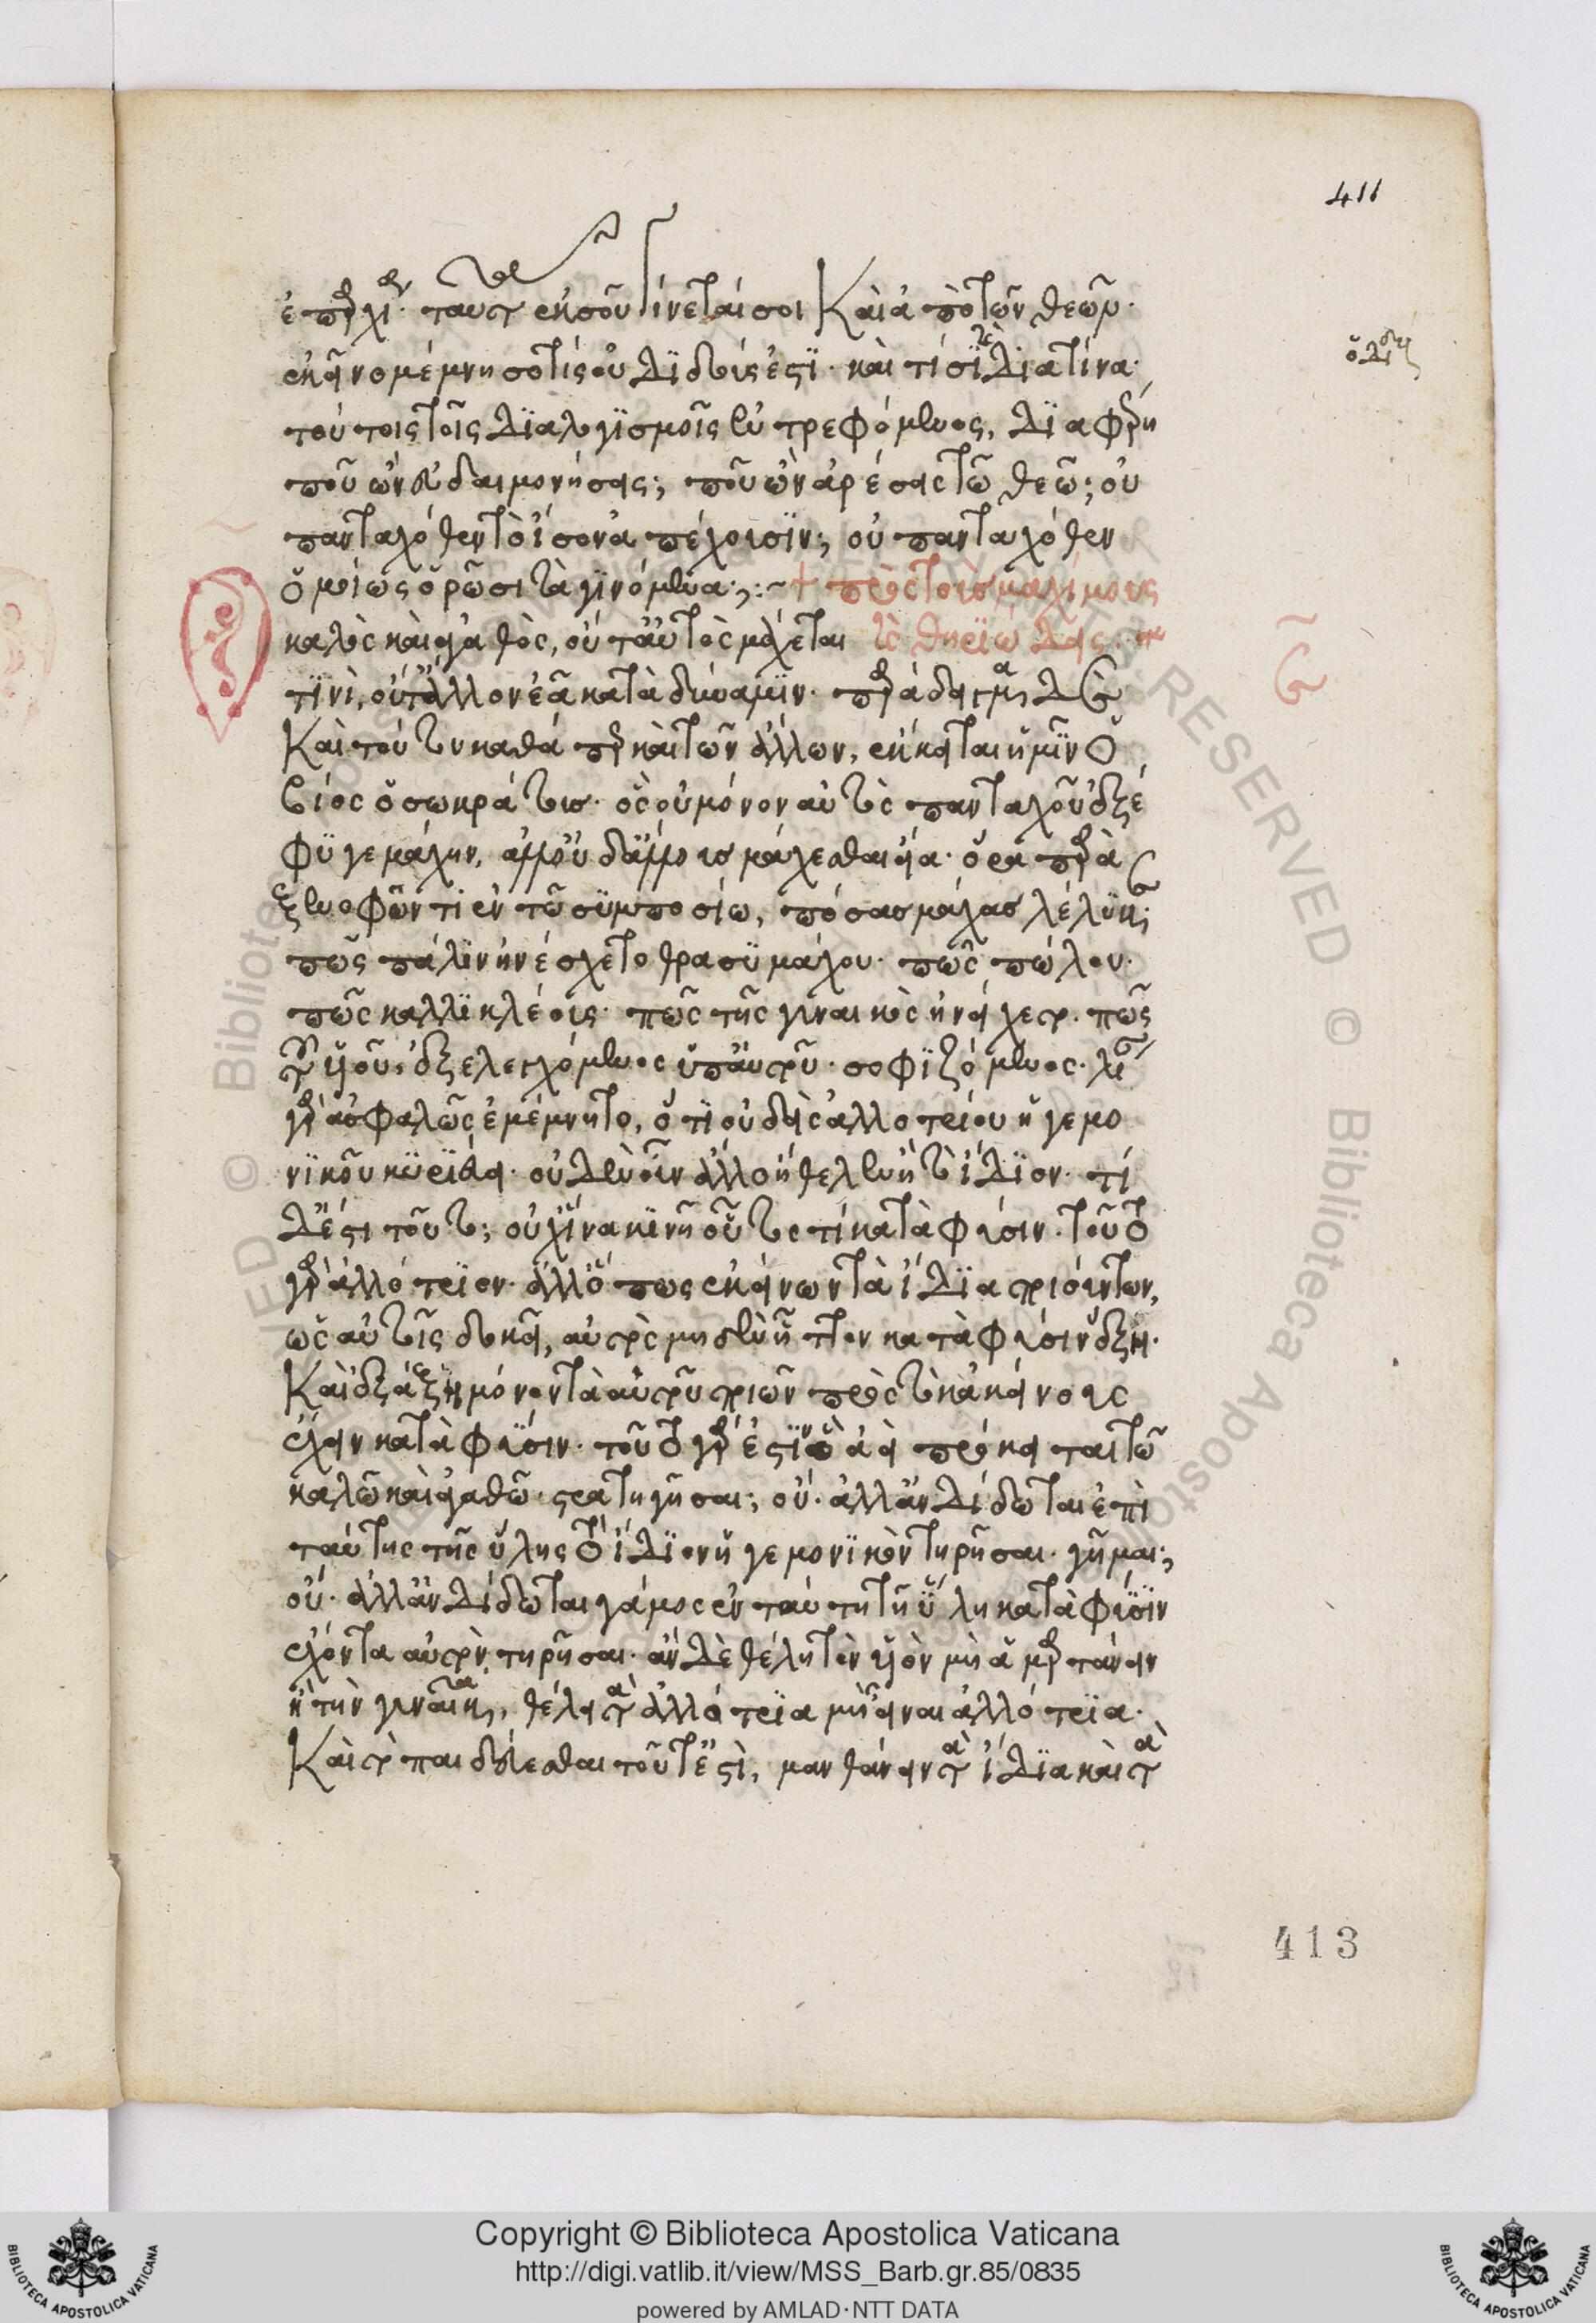 411
ἐπαρχίαν· ταῦτα ἐκ σοῦ γίνεταί σοι καὶ ἀπὸ τῶν θεῶν·
ἐκείνο μέμνησο τίς οὐ διδούς ἐστι· καὶ τίσι καὶ διατίνα·
τούτοις τοῖς διαλογισμοῖς ἐντρεφόμενος, διαφέρη
ποῦ ὢν εὐδαιμονήσεις; ποῦ ὢν ἀρέσεις τῶ θεῶ; οὐ
πανταχόθεν τὸ ἴσον ἀπέχουσιν; οὐ πανταχόθεν
ὁμοίως ὁρῶσι τὰ γινόμενα; :~ + πρὸς τοὺς μαχίμους
καλὸς καὶ ἀγαθὸς, οὔτ' αὐτὸς μάχεται κ(αὶ) θηριώδεις
τινὶ, οὔτ' ἄλλον ἐᾶ κατὰ δύναμιν· παράδειγμα δὲ
καὶ τούτου καθάπερ καὶ τῶν ἄλλων, ἔκκειται ἡμῖν ὁ
βίος ὁ σωκράτους· ὃς οὐ μόνον αὐτὸς πανταχοῦ ἐξέ
φυγε μάχην, ἀλλ' οὐδ' ἄλλους μάχεσθαι εἴα· ὅρα παρὰ
ξενοφῶντι ἐν τῶ συμποσίω, πόσας μάχας λέλυκε;
πῶς πάλιν ἠνέσχετο θρασυμάχου· πῶς πώλου·
πῶς καλλικλέους· πῶς τῆς γυναικὸς ἠνείχετο· πῶς
τοῦ υἱοῦ, ἐξελεγχόμενος ὑπ' αὐτοῦ· σοφιζόμενος· λίαν
γὰρ ἀσφαλῶς ἐμέμνητο, ὅτι οὐδεὶς ἀλλοτρίου ἡγεμο
νικοῦ κυριεύει· οὐδὲν οὖν ἄλλο ἤθελεν ἢ τὸ ἴδιον· τί
δ' ἔστι τοῦτο; οὐχ ἵνα κινῆ οὗτος τί κατὰ φύσιν· τοῦτο
γὰρ ἀλλότριον· ἀλλ' ὅπως ἐκείνων τὰ ἴδια ποιούντων,
ὡς αὐτοῖς δοκεῖ, αὐτὸς μηδὲν ἧττον κατὰ φύσιν ἕξει·
καὶ διεξάξει μόνον τὰ αὐτοῦ ποιῶν πρὸς τὸ κἀκείνους
ἔχειν κατὰ φύσιν· τοῦτο γάρ ἐστιν ὃ ἀεὶ πρόκειται τῶ
καλῶ καὶ ἀγαθῶ· στρατηγῆσαι; οὔ· ἀλλ' ἂν διδῶται ἐπὶ
ταύτης τῆς ὕλης τὸ ἴδιον ἡγεμονικὸν τηρῆσαι· γῆμαι;
οὔ· ἀλλ' ἂν διδῶται γάμος ἐν ταύτη τῆ ὕλη κατὰ φύσιν
ἔχοντα αὐτὸν τηρῆσαι· ἂν δὲ θέλη τὸν υἱὸν μὴ ἁμαρτάνειν
ἢ τὴν γυναῖκα, θέλει τὰ ἀλλότρια μὴ εἶναι ἀλλότρια·
καὶ τὸ παιδεύεσθαι τοῦτ' ἔστι, μανθάνειν τὰ ἴδια καὶ τὰ
413
Copyright © Biblioteca Apostolica Vaticana
http://digi.vatlib.it/view/MSS_Barb.gr.85/0835
powered by AMLAD·NTT DATA
BIBLIOTECA APOSTOLICA VATICANA
BIBLIOTECA APOSTOLICA VATICANA